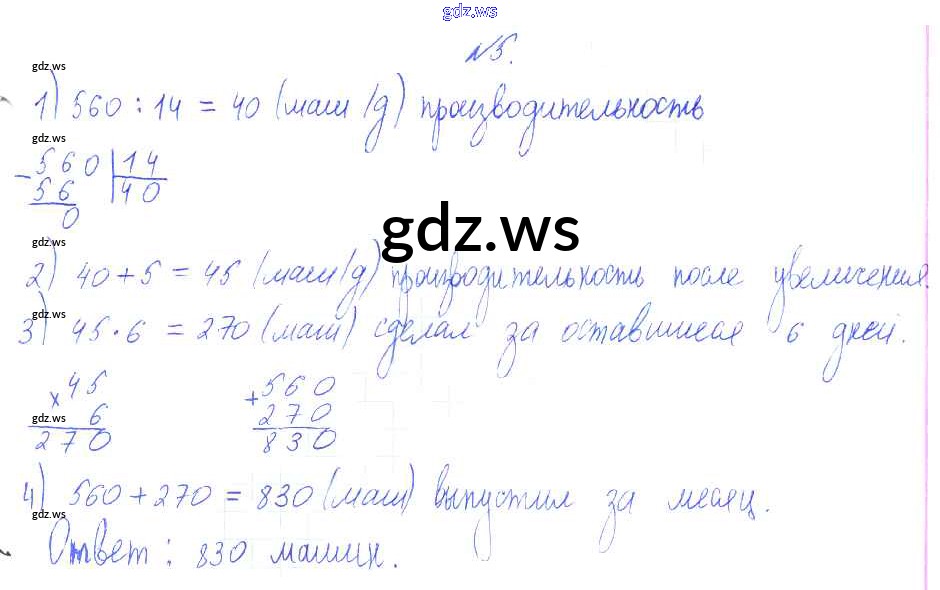 gdz.ws
№5.
gdz.ws
1) 560 : 14 = 40 (маш/д) производительность
gdz.ws
- 560 | 14
56 | 40
0
gdz.ws
gdz.ws
2) 40 + 5 = 45 (маш/д) производительность после увеличения.
gdz.ws
3) 45 · 6 = 270 (маш) сделал за оставшиеся 6 дней.
× 45 + 560
gdz.ws 6 270
270 830
4) 560 + 270 = 830 (маш) выпустил за месяц.
gdz.ws
Ответ : 830 машин.